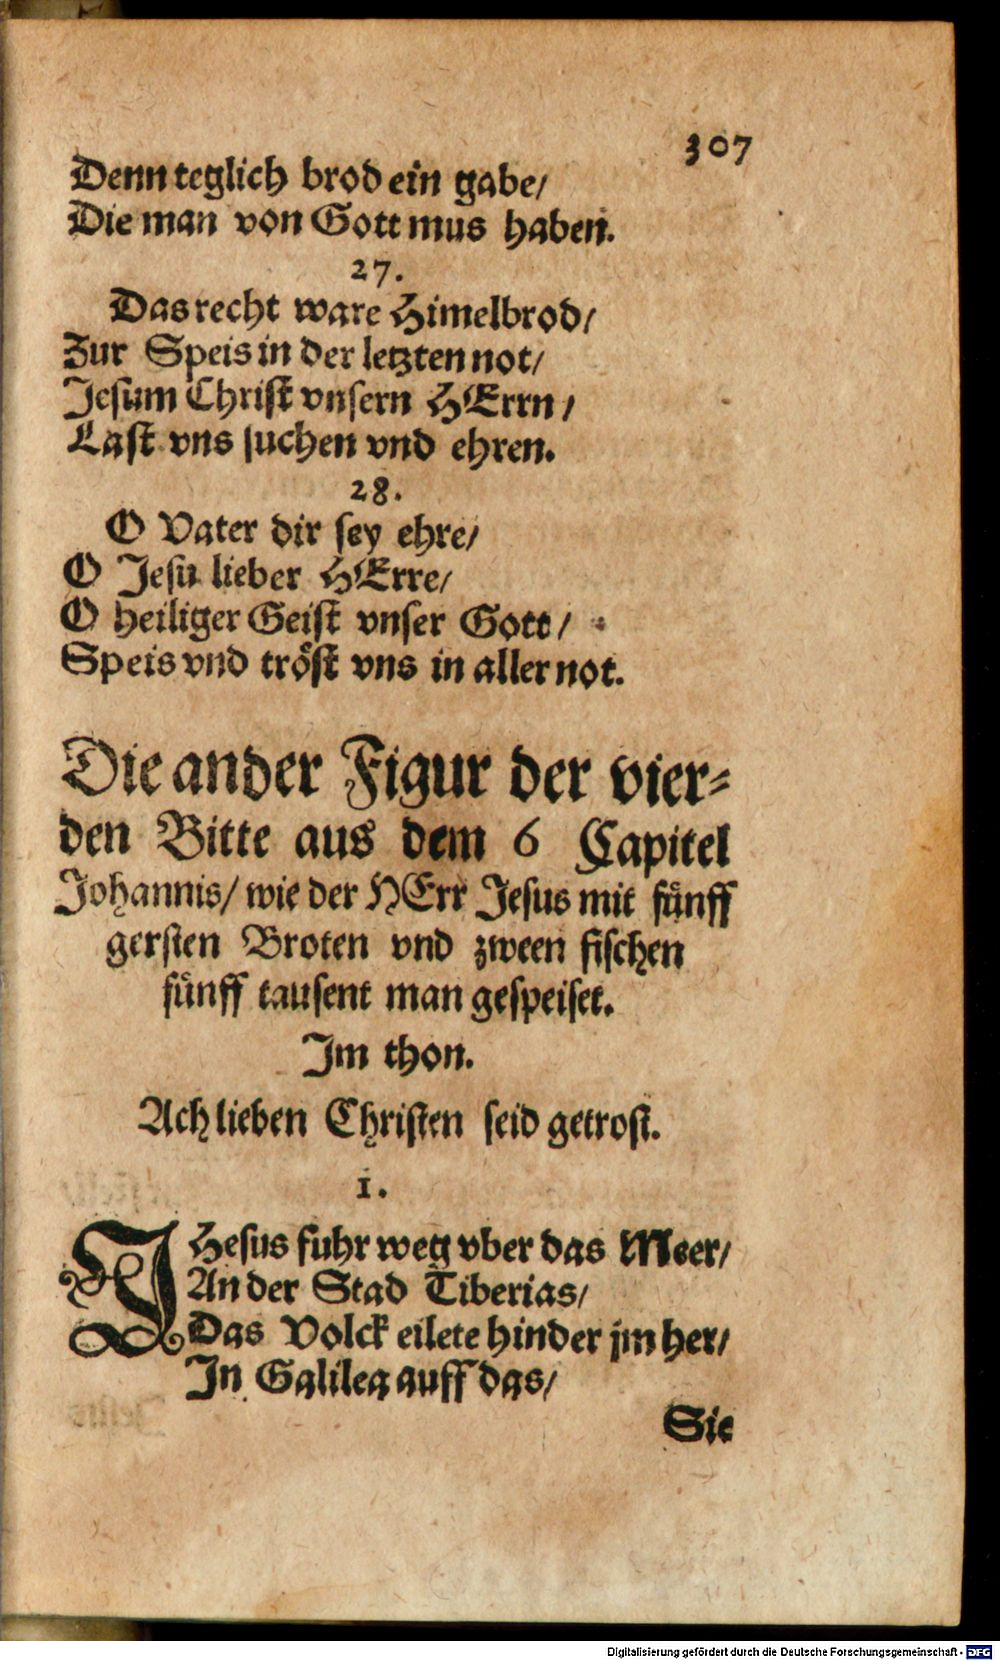 307
Denn teglich brod ein gabe/
Die man von Gott mus haben.
27.
Das recht ware Himelbrod/
Zur Speis in der letzten not/
Jesum Christ vnsern HErrn/
Last vns suchen vnd ehren.
28.
O Vater dir sey ehre/
O Jesu lieber HErre/
O heiliger Geist vnser Gott/
Speis vnd tröst vns in aller not.
Die ander Figur der vier-
den Bitte aus dem 6 Capitel
Johannis/ wie der HErr Jesus mit fünff
gersten Broten vnd zween fischen
fünff tausent man gespeiset.
Im thon.
Ach lieben Christen seid getrost.
1.
JHesus fuhr weg vber das Meer/
An der Stad Tiberias/
Das Volck eilete hinder jm her/
In Galilea auff das/
Sie
Digitalisierung gefördert durch die Deutsche Forschungsgemeinschaft - DFG